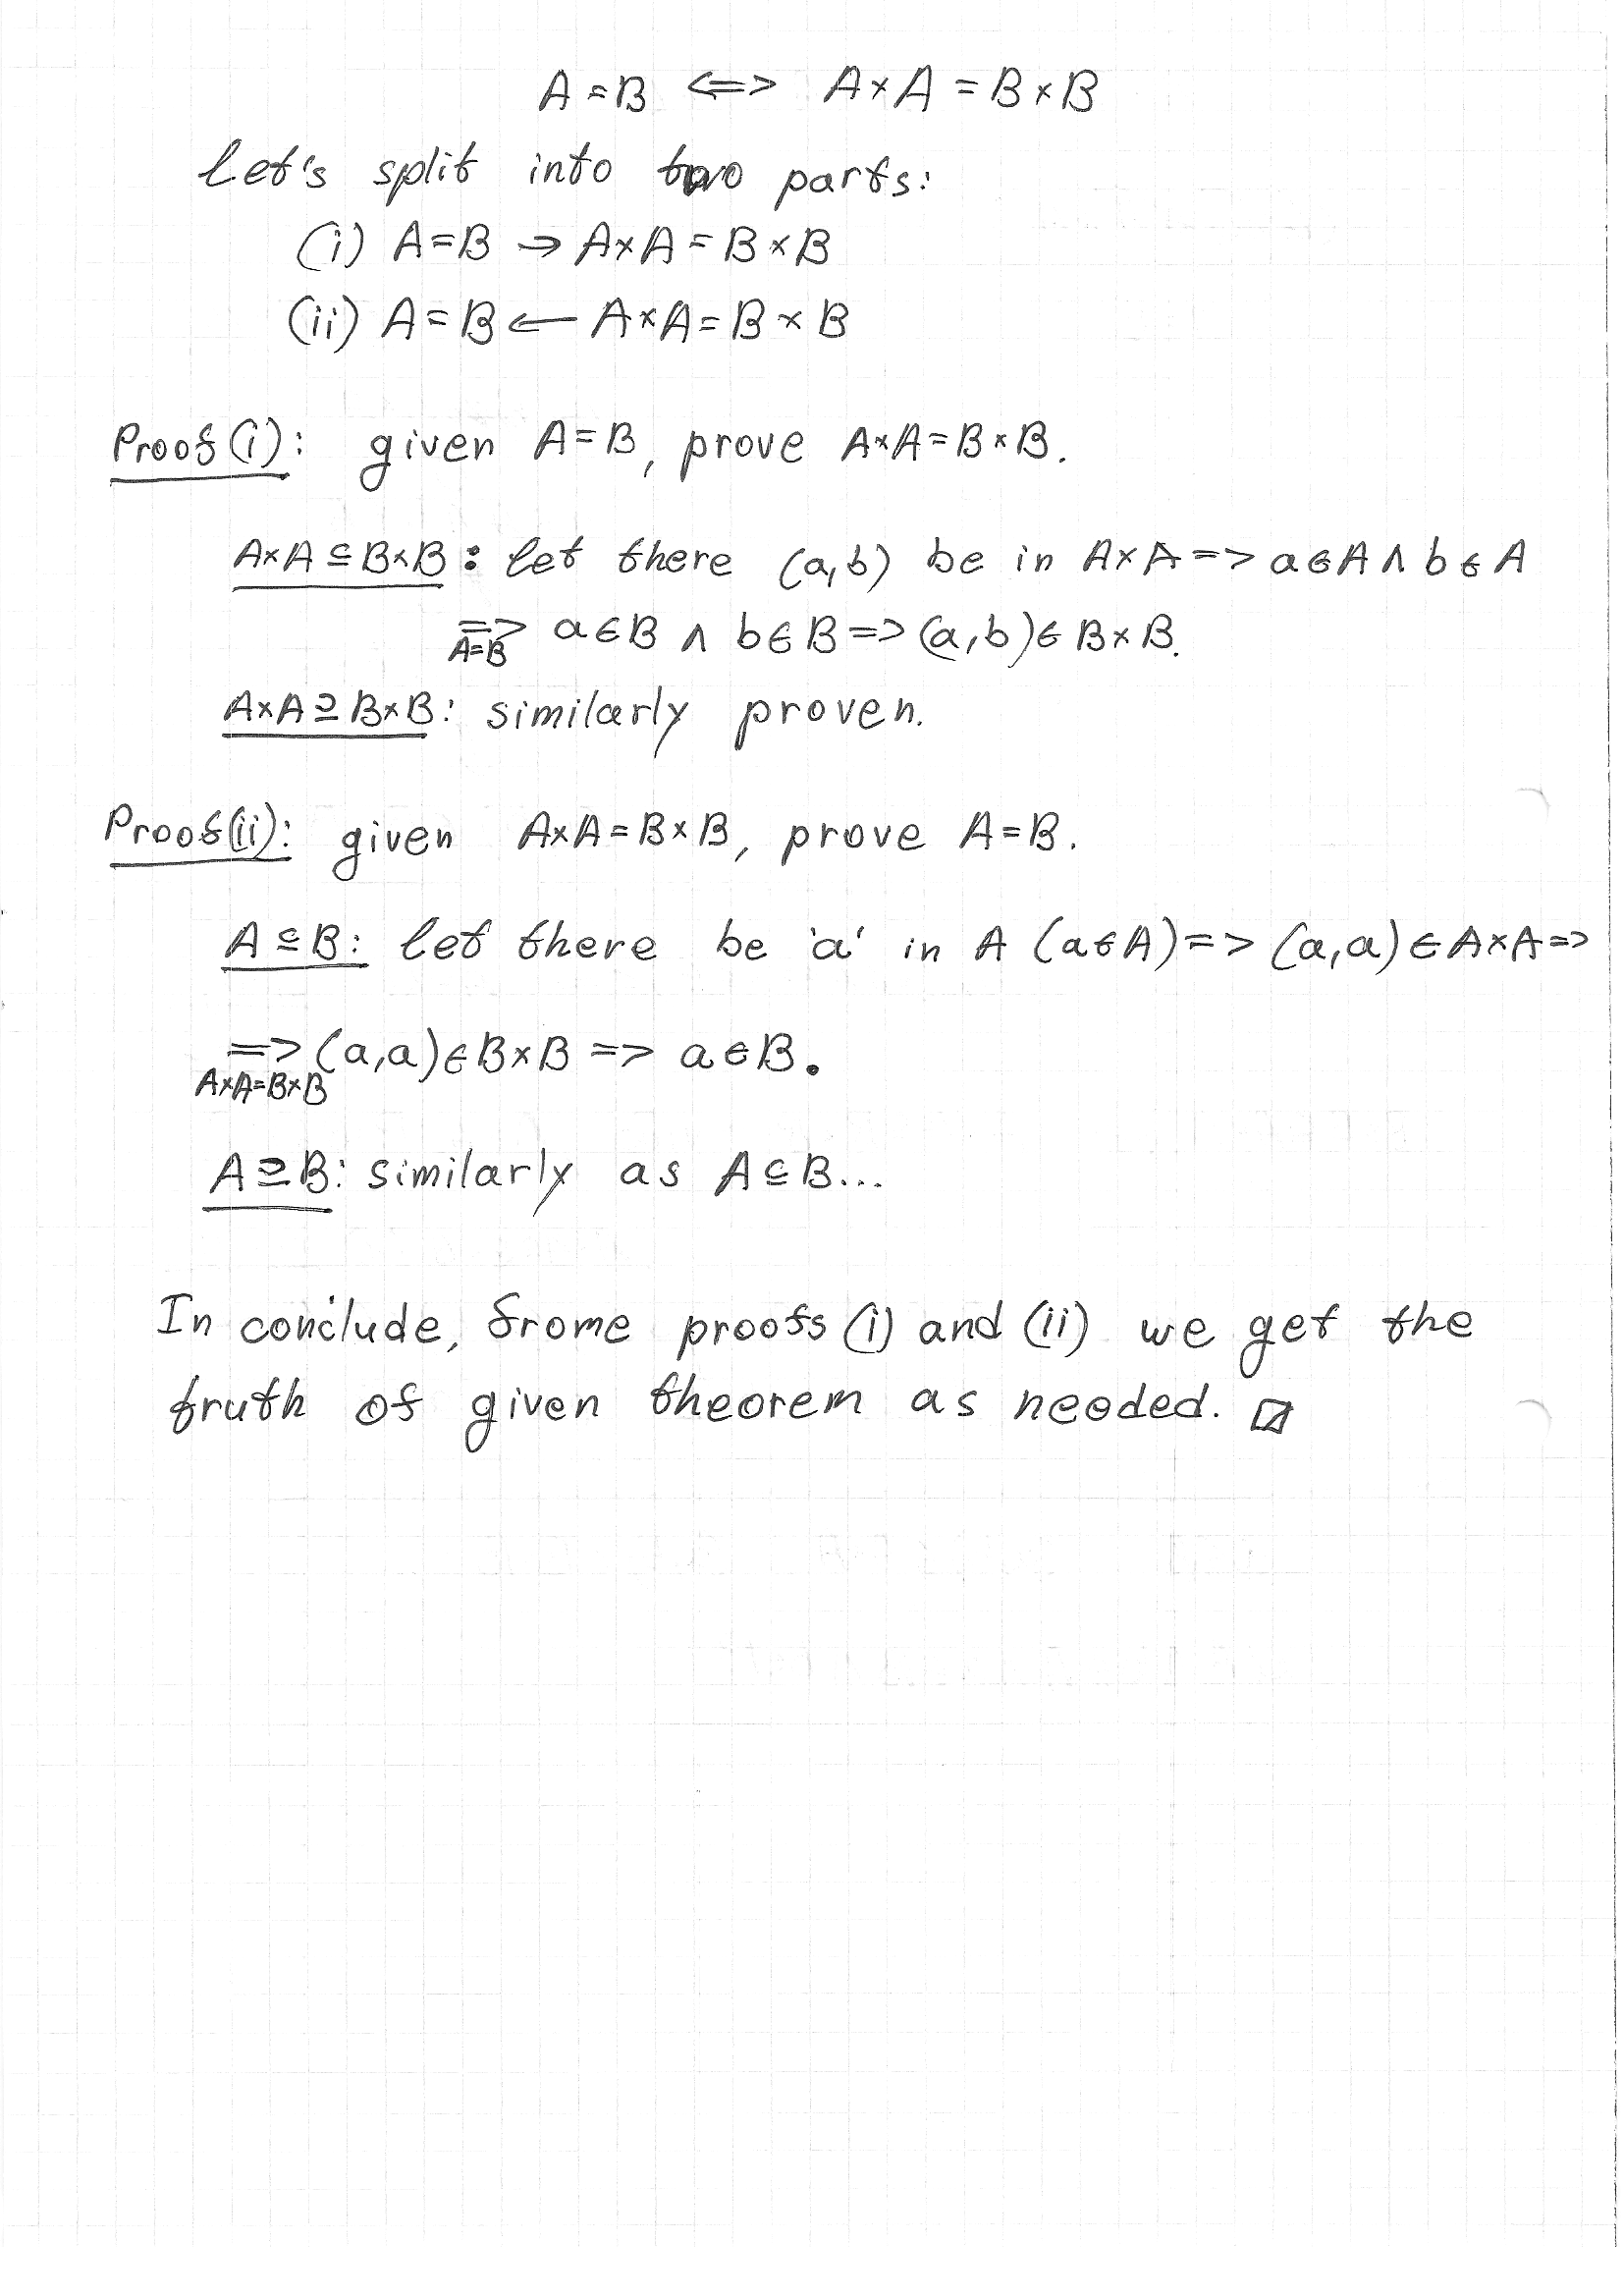 A=B <=> A×A = B×B
Let's split into two parts:
(i) A=B → A×A = B×B
(ii) A=B ← A×A=B×B
Proof(i): given A=B, prove A×A=B×B.
A×A⊆B×B: let there (a,b) be in A×A => a∈A ∧ b∈A
=> a∈B ∧ b∈B => (a,b)∈ B×B.
A=B
A×A⊇B×B: similarly proven.
Proof(ii): given A×A=B×B, prove A=B.
A⊆B: let there be 'a' in A (a∈A) => (a,a)∈A×A =>
=> (a,a)∈B×B => a∈B.
A×A=B×B
A⊇B: similarly as A⊆B...
In conclude, frome proofs (i) and (ii) we get the
truth of given theorem as needed. ☐